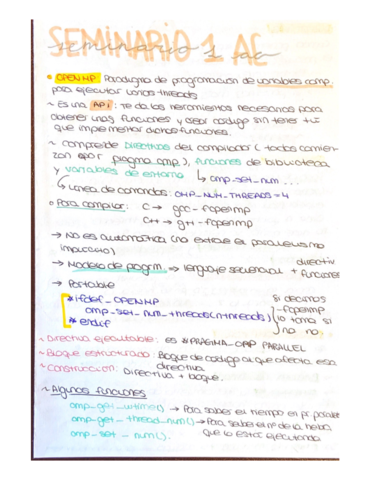 SEMINARIO 1 AC
seminario 1 ac
• OPENMP Paradigma de programación de variables comp.
para ejecutar varios threads
~ Es una API: te da las herramientas necesarias para
obtener unas funciones y crear código sin tener tú
que implementar dichas funciones.
~ comprende directivas del compilador (todas comien-
zan por pragma omp), funciones de biblioteca
y variables de entorno ↳ omp-set-num ...
↳ Linea de comandos: OMP_NUM_THREADS=4
• Para compilar: C → gcc -fopenmp
C++ → g++ -fopenmp
→ No es automática (no extrae el paralelismo
implícito)
→ Modelo de progm. → lenguaje secuencial + directiv
funciones
→ Portable
#ifdef _OPENMP
omp_set_num_threads(nthreads)
#endif
si decimos
-fopenmp
lo toma si
no no.
~ Directiva ejecutable: es #PRAGMA OMP PARALLEL
~ Bloque estructurado: Bloque de código al que afecta esa
directiva
~ Construcción: Directiva + bloque.
~ Algunas funciones
omp_get_wtime() → Para saber el tiempo en pr. paralelo
omp_get_thread_num() → Para saber el nº de la hebra
que lo está ejecutando
omp_set_num().